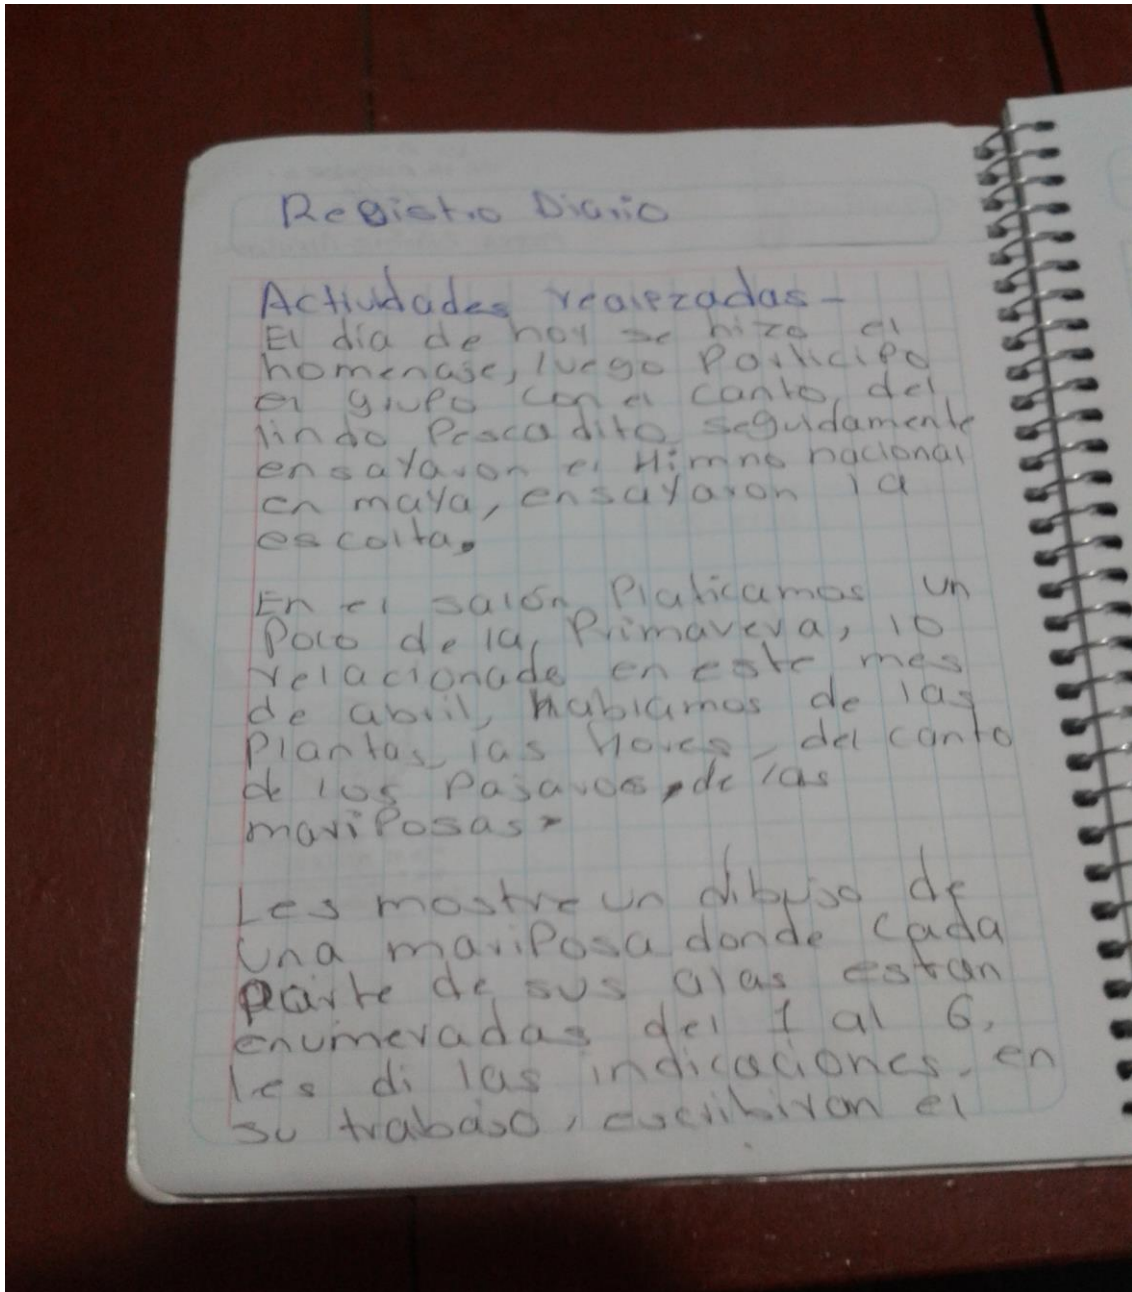 Registro Diario
Actividades realizadas-
El día de hoy se hizo el
homenaje, luego Participo
el grupo con el canto, del
lindo Pescadito, seguidamente
ensayaron el Himno nacional
en maya, ensayaron la
escolta.
En el salón Platicamos un
Poco de la Primavera, lo
relacionado en este mes
de abril, hablamos de las
Plantas, las flores, del canto
de los Pajaros, de las
mariposas.
Les mostre un dibujo de
una mariposa donde cada
parte de sus alas estan
enumeradas del 1 al 6,
les di las indicaciones. en
su trabajo, escribiron el